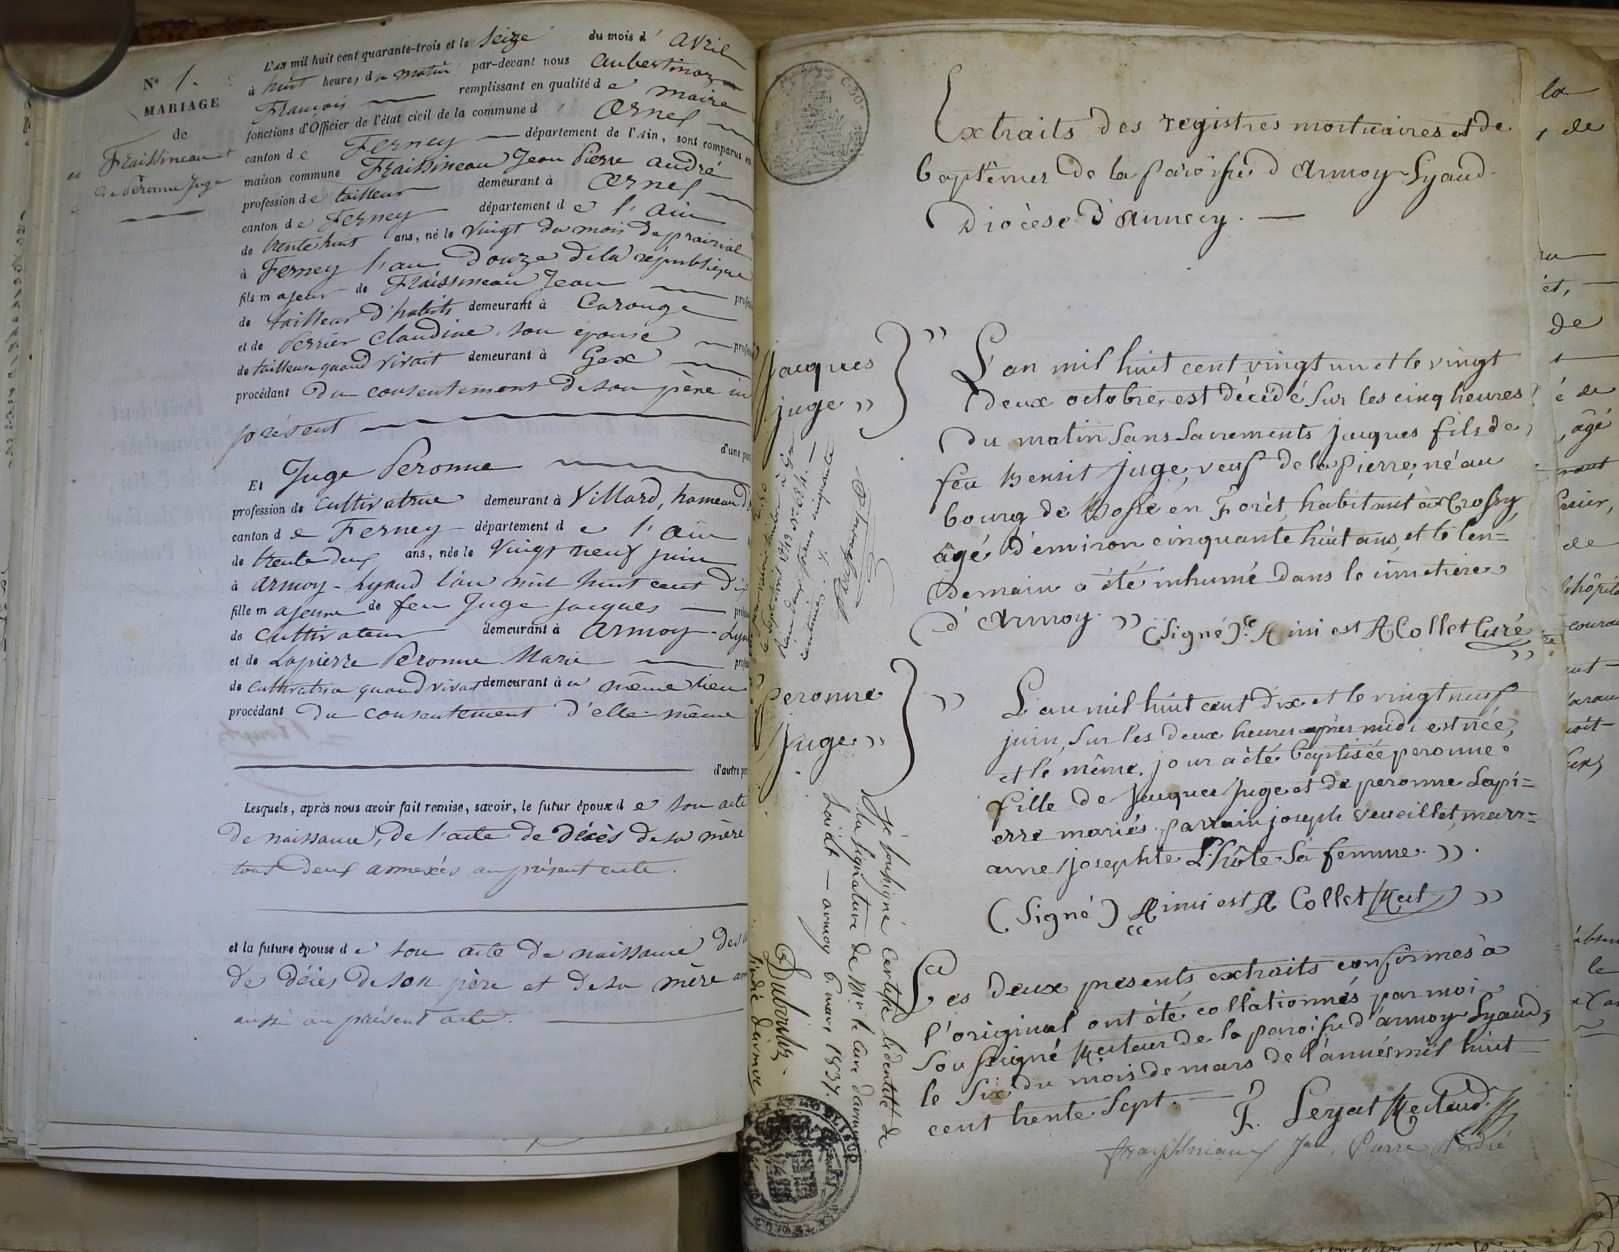 N° 1.
MARIAGE
de
Fraissineau
de Péronne Juge
L'an mil huit cent quarante-trois et le seize du mois d' avril
à huit heures du matin par-devant nous Aubertin
François remplissant en qualité de maire
fonctions d'Officier de l'état civil de la commune d' Ornex
canton de Ferney département de l'Ain, sont comparus en
maison commune Fraissineau Jean Pierre André
profession de tailleur demeurant à Ornex
canton de Ferney département de l'Ain
de trente huit ans, né le vingt du mois de prairial
à Ferney l'an Douze de la république
fils majeur de Fraissineau Jean
de tailleur d'habits demeurant à Carouge
et de Perrier Claudine son epouse
de tailleuse quand vivait demeurant à Gex
procédant du consentement de son père ici
présent
d'une part
Et Juge Peronne
profession de cultivatrice demeurant à Villard, hameau d
canton de Ferney département de l'Ain
de trente deux ans, née le vingt neuf juin
à Armoy-Lyaud l'an mil huit cent dix
fille majeure de feu Juge Jacques
de cultivateur demeurant à Armoy-Ly
et de Lapierre Peronne Marie
de cultivatrice quand vivait demeurant au même lieu
procédant du consentement d'elle-même
d'autre part
Lesquels, après nous avoir fait remise, savoir, le futur époux de son acte
de naissance, de l'acte de décès de sa mère
tous deux annexés au présent acte.
et la future épouse de son acte de naissance des
de décès de son père et de sa mère
aussi au présent acte.
Extraits des registres mortuaires et de
baptêmes de la paroisse d'Armoy-Lyaud.
Diocèse d'Annecy.
Jacques
Juge »
» L'an mil huit cent vingt un et le vingt
deux octobre, est décédé sur les cinq heures
du matin sans sacrements jacques fils de
feu Benoit Juge, veuf de la pierre, né au
bourg de Bosse en Forêt, habitant à Crossy
âgé d'environ cinquante huit ans, et le len=
demain a été inhumé dans le cimetière
d'Armoy » (Signé) Ainsi est A Collet Curé
»
peronne
Juge »
» L'an mil huit cent dix et le vingt neuf
juin, sur les deux heures après midi est née,
et le même jour a été baptisée peronne
fille de Jacques Juge et de peronne Lapi=
erre mariés. parrain joseph Veveillet, marr=
aine josephte L'hôte sa femme. »
(Signé) Ainsi est A Collet Rect »
Les deux presents extraits conformes à
l'original ont été collationnés par moi
soussigné Recteur de la paroisse d'armoy Lyaud,
le Six du mois de mars de l'année mil huit
cent trente Sept.
Leyat Recteur
Jean Pierre André
Je soussigné certifie l'identité de
la signature de Mr le Curé d'armoy
Lyaud — armoy 6 mars 1837.
Duborier
Sindic d'armoy